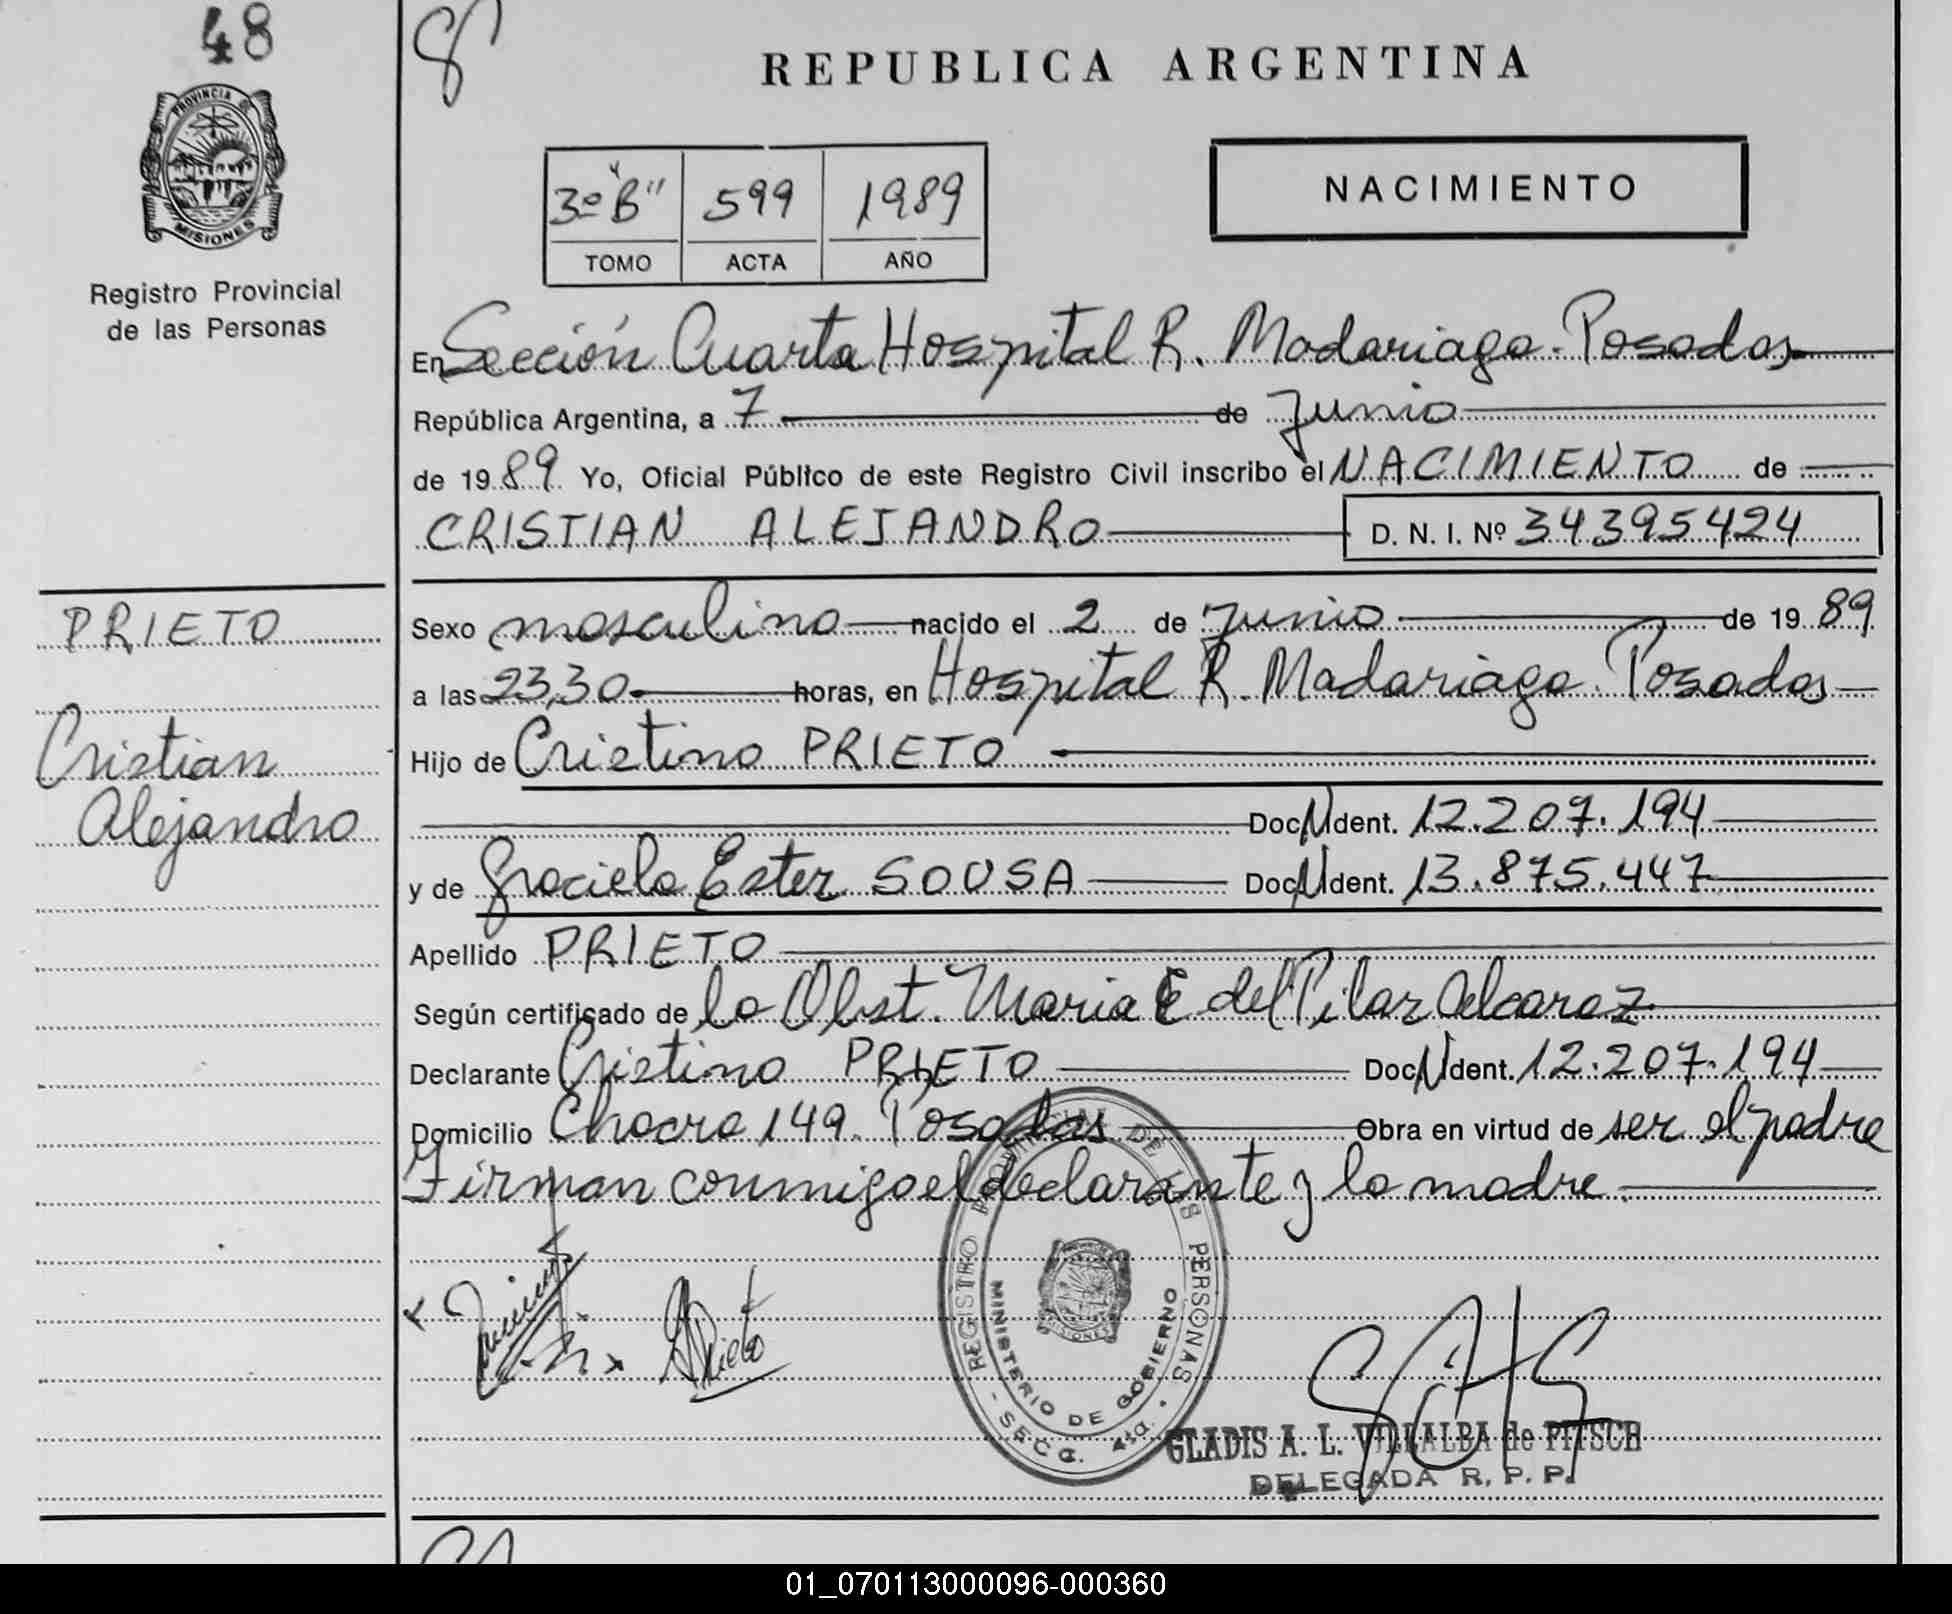 48
PROVINCIA DE
MISIONES
Registro Provincial
de las Personas
PRIETO
Cristian
Alejandro
REPUBLICA ARGENTINA
3º "B" 599 1989
TOMO ACTA AÑO
NACIMIENTO
En Sección Cuarta Hospital R. Madariaga. Posadas
República Argentina, a 7 de Junio
de 1989 Yo, Oficial Público de este Registro Civil inscribo el NACIMIENTO de
CRISTIAN ALEJANDRO D. N. I. Nº 34395424
Sexo masculino nacido el 2 de Junio de 1989
a las 23,30 horas, en Hospital R. Madariaga. Posadas
Hijo de Cristino PRIETO
Doc. Ident. 12.207.194
y de Graciela Ester SOUSA Doc. Ident. 13.875.447
Apellido PRIETO
Según certificado de la Obst. Maria E del Pilar Alcaraz
Declarante Cristino PRIETO Doc. Ident. 12.207.194
Domicilio Chacra 149. Posadas Obra en virtud de ser el padre
Firman conmigo el declarante y la madre.
REGISTRO PROVINCIAL DE LAS PERSONAS
MINISTERIO DE GOBIERNO
SECC. 4ta.
MISIONES
Prieto
GLADIS A. L. VILLALBA de PITSCH
DELEGADA R. P. P.
01_070113000096-000360